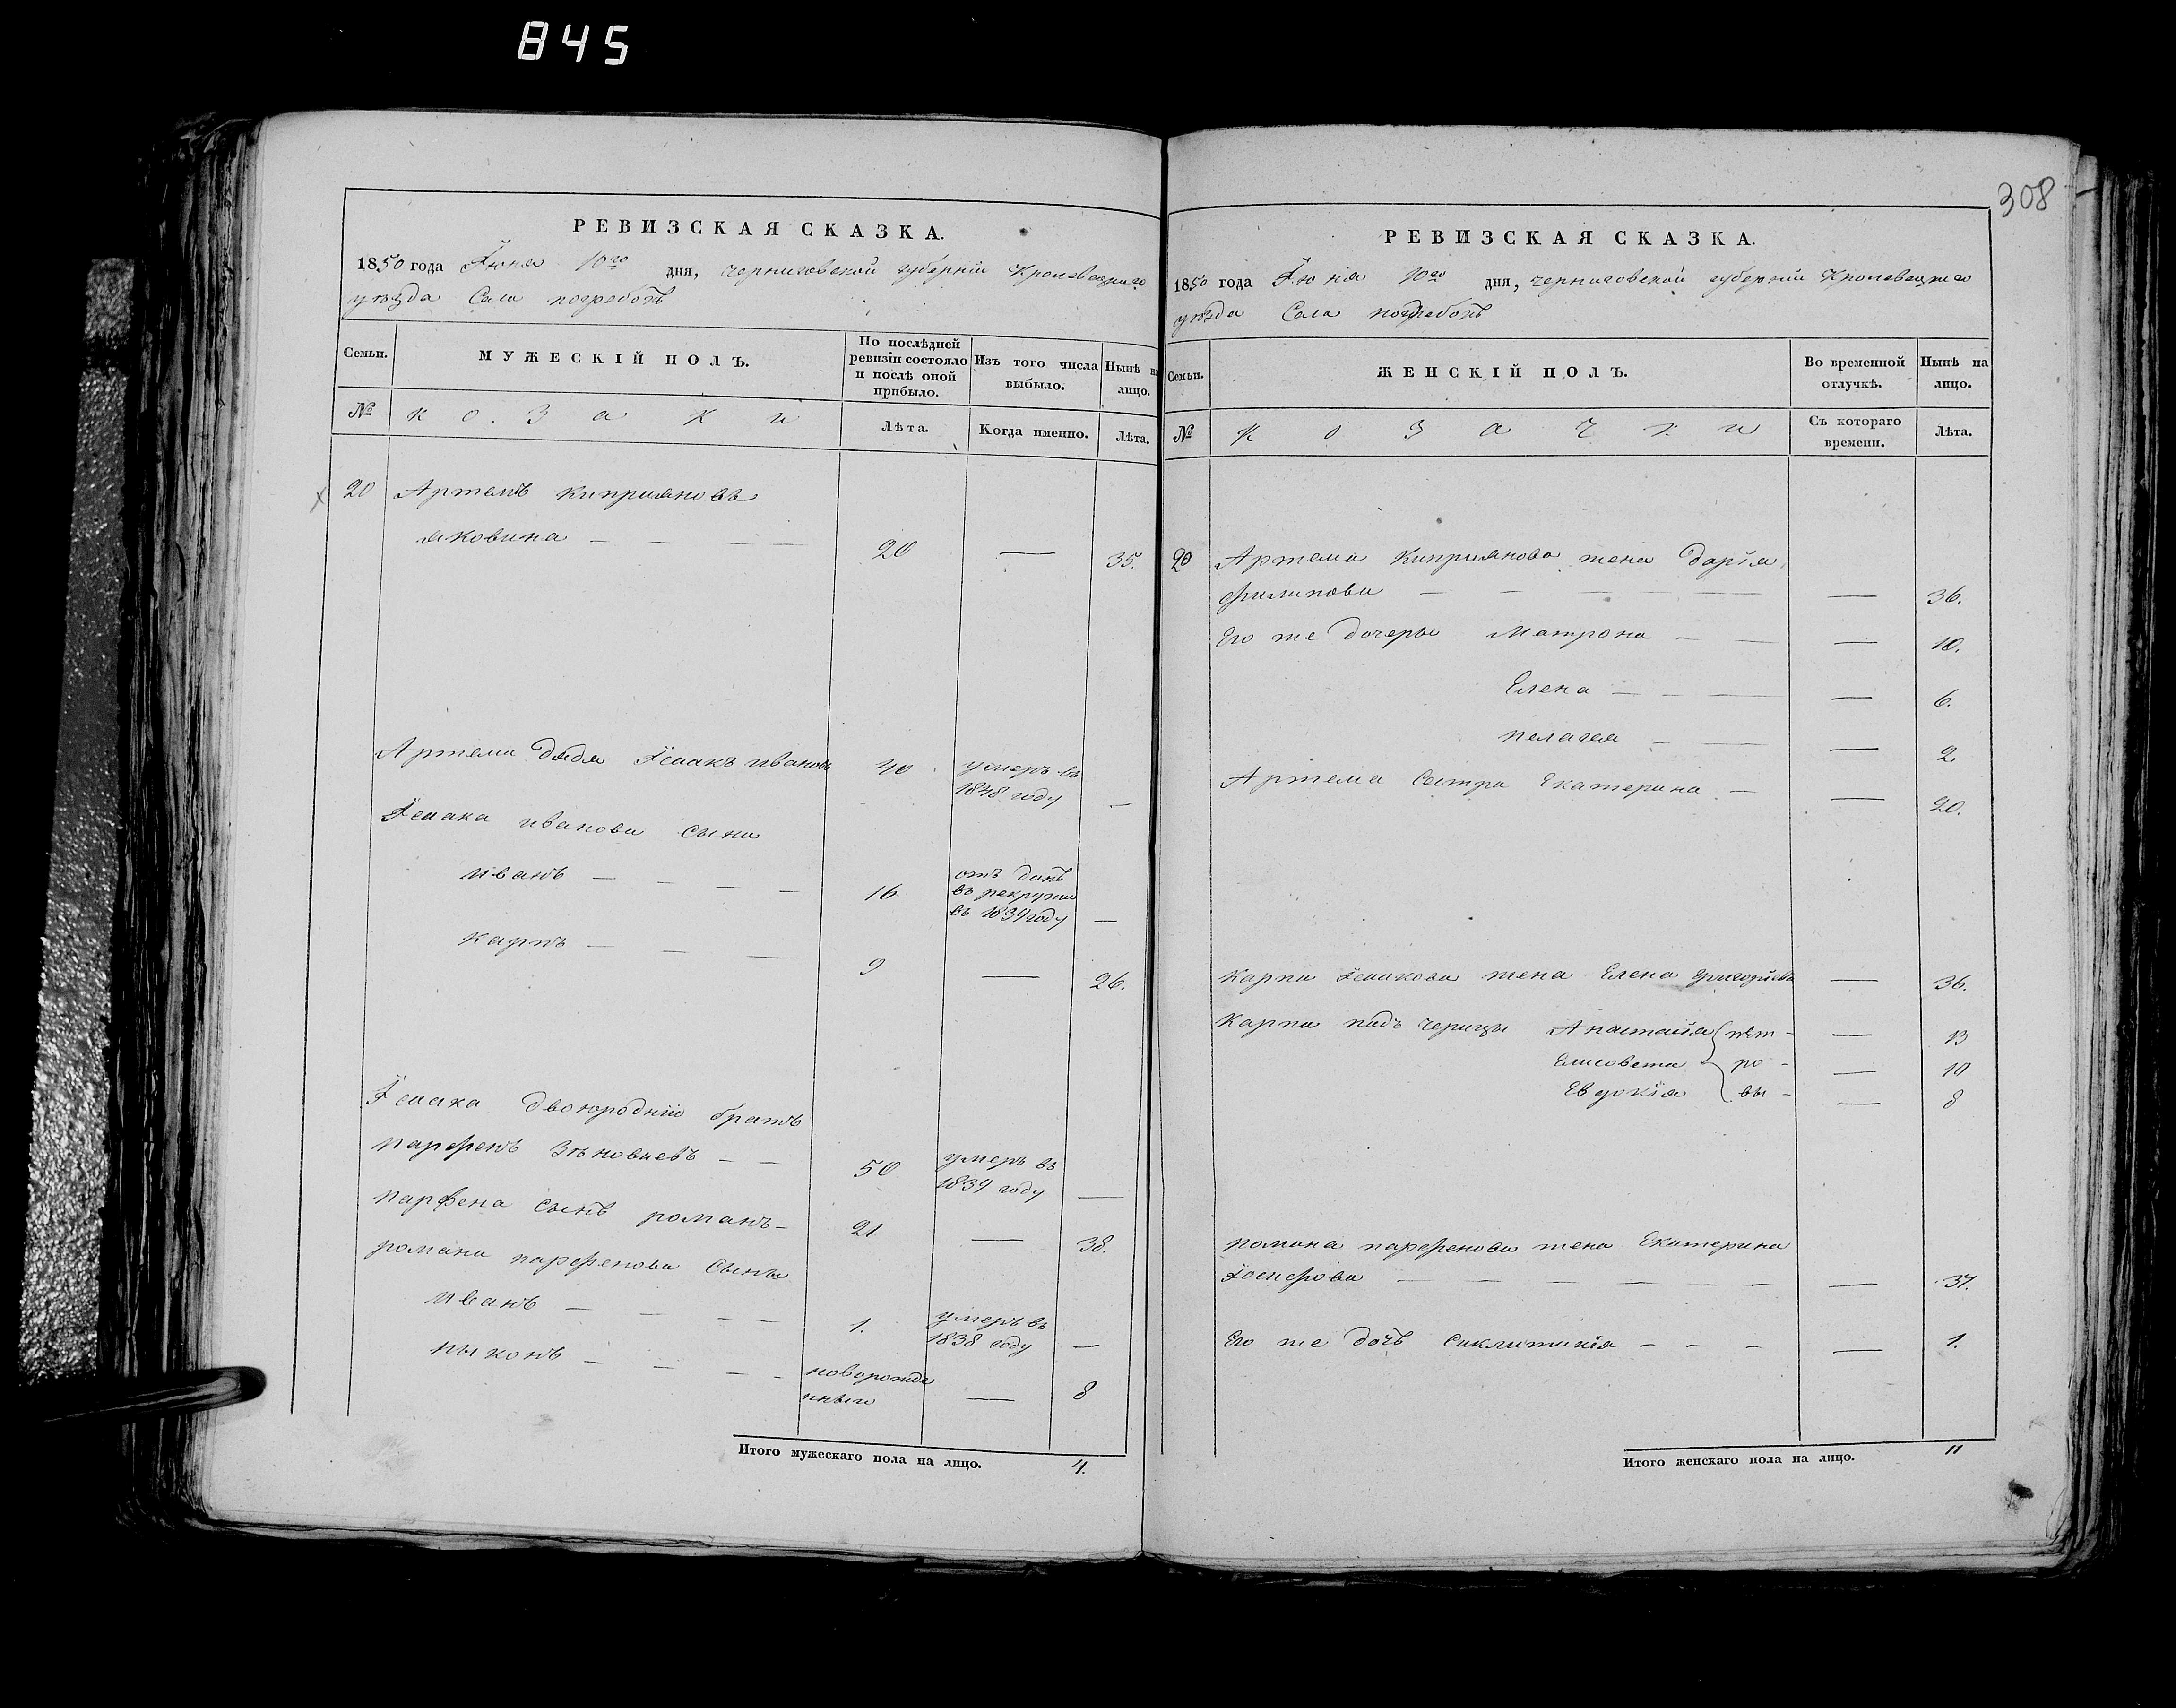 845
308
РЕВИЗСКАЯ СКАЗКА.
1850 года Іюня 10го дня, черниговской губерніи Кролевецкаго
уѣзда Села погребокъ
Семьи.
МУЖЕСКІЙ ПОЛЪ.
По послѣдней
ревизіи состояло
и послѣ оной
прибыло.
Изъ того числа
выбыло.
Нынѣ на
лицо.
№
козаки
Лѣта.
Когда именно.
Лѣта.
20 Артемъ киприяновъ
яковина 20 — 35.
Артема дядя Ісаакъ ивановъ 40 умеръ въ
1848 году —
Ісаака иванова сыны
иванъ 16 отъ данъ
въ рекруты
въ 1839 году —
карпъ 9 — 26.
Ісаака двоюродній братъ
парфенъ Зѣновиевъ 50 умеръ въ
1839 году —
парфена сынъ романъ 21 — 38.
романа парфенова сыны
иванъ 1. умеръ въ
1838 году —
новорожде
нный — 8
Итого мужескаго пола на лицо. 4.
РЕВИЗСКАЯ СКАЗКА.
1850 года Іюня 10го дня, черниговской губерніи Кролевецкаго
уѣзда Села погребокъ
Семьи.
ЖЕНСКІЙ ПОЛЪ.
Во временной
отлучкѣ.
Нынѣ на
лицо.
№
козачки
Съ котораго
времени.
Лѣта.
20 Артема Киприянова жена дарія
филипова — 36.
Его же дочеры Матрона — 10.
Елена — 6.
пелагея — 2.
Артема сестра Екатерина — 20.
Карпа Ісаакова жена Елена григоріева — 36.
Карпа падъчерицы Анастасія — 13
Елисовета — 10
Евдокія — 8
романа парфенова жена Екатерина
Іосифова — 37.
Его же дочъ Сиклитикія — 1.
Итого женскаго пола на лицо. 11